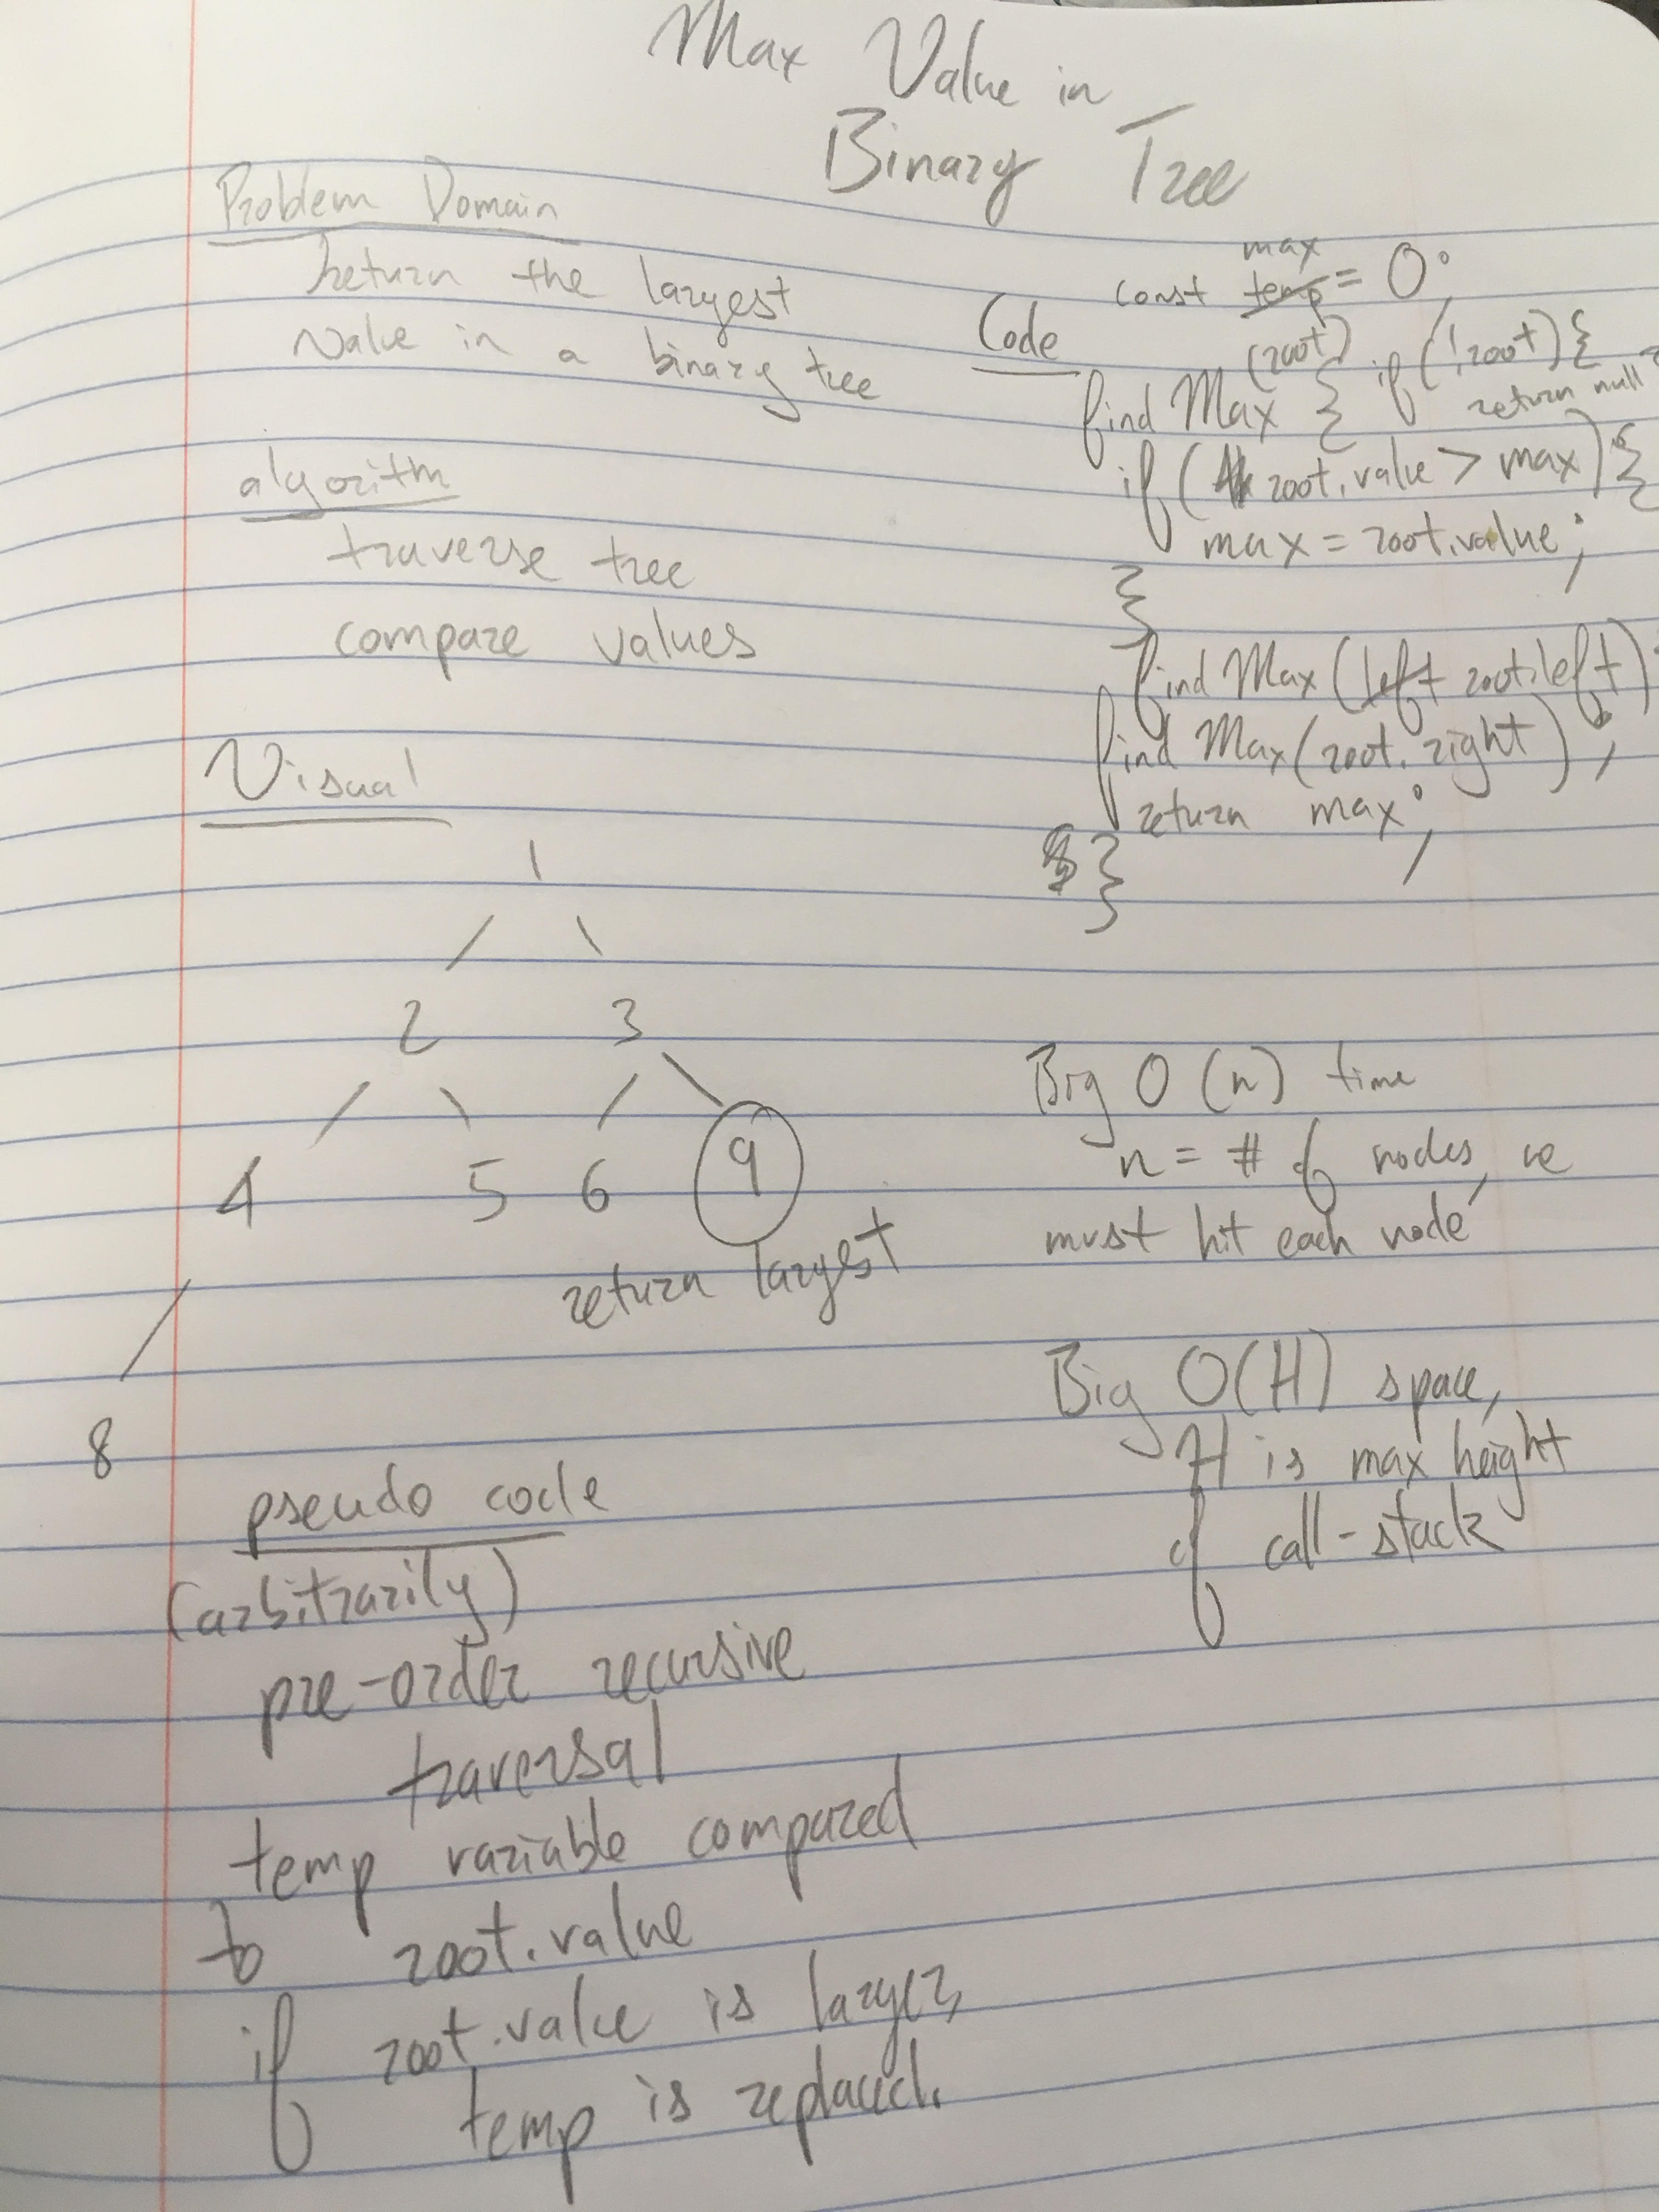 Max Value in
Binary Tree
Problem Domain
return the largest
value in a binary tree
algorithm
traverse tree
compare values
Visual
1
2 3
4 5 6 9
return largest
8
pseudo code
(arbitrarily)
pre-order recursive
traversal
temp variable compared
to root.value
if root.value is larger,
temp is replaced.
Code
max
const temp = 0;
(root) if (!root) {
find Max { return null
if ( root.value > max) {
max = root.value;
}
find Max (left root.left)
find Max (root.right);
return max;
}
Big O (n) time
n = # of nodes, we
must hit each node
Big O(H) space,
H is max height
of call-stack